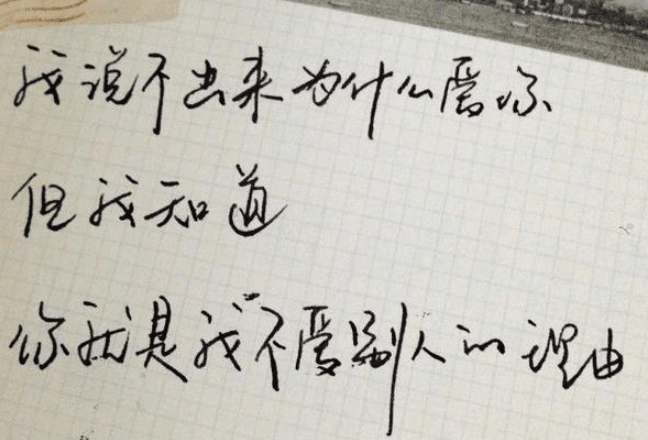 我说不出来为什么爱你
但我知道
你就是我不爱别人的理由